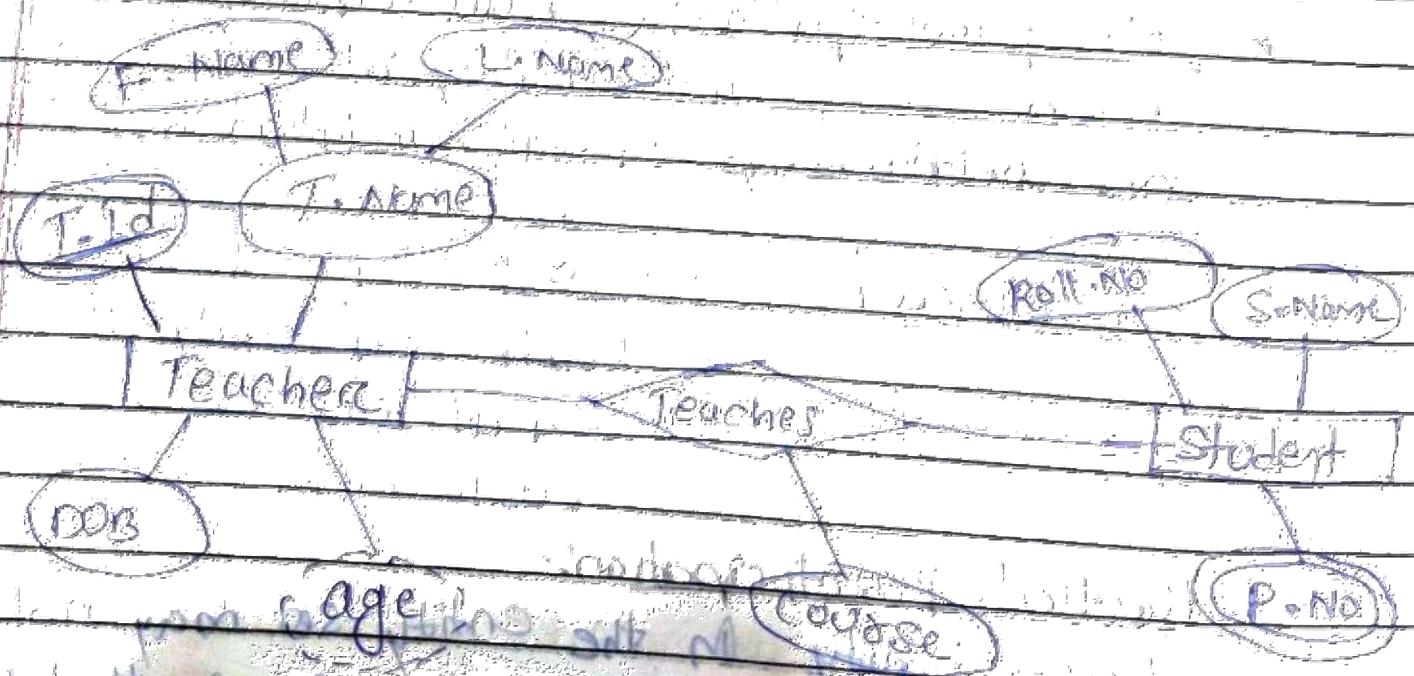 F. Name
L. Name
T. Name
T. Id
Roll. No
S. Name
Teacher
Teaches
Student
DOB
age
Course
P. No